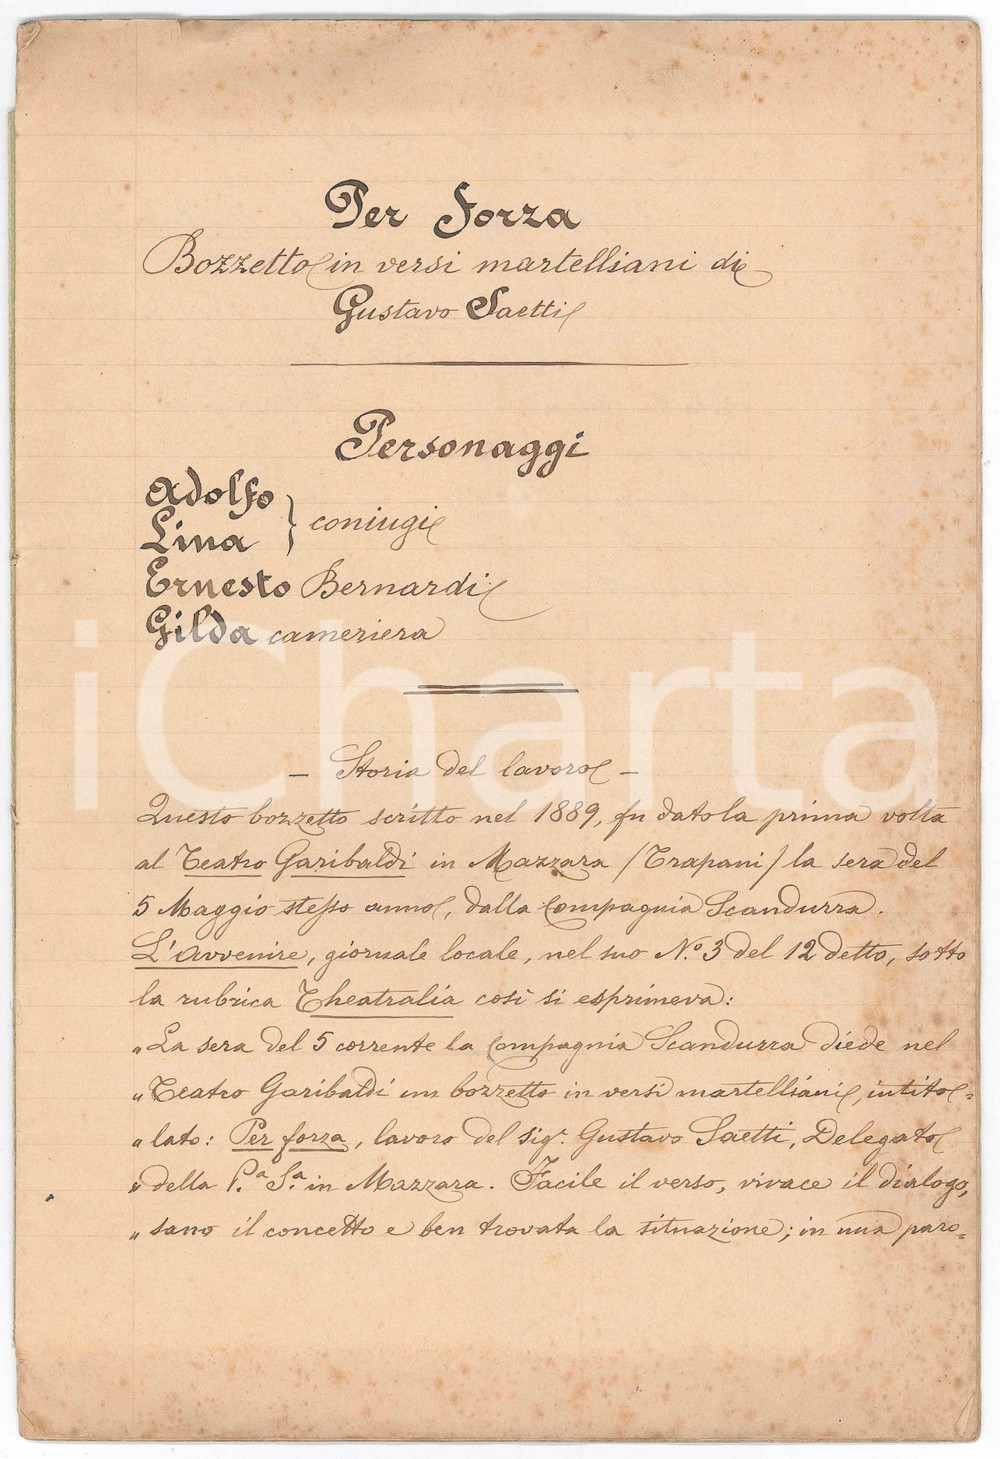 Per Forza
Bozzetto in versi martelliani di
Gustavo Saetti
Personaggi
Adolfo
Lina } coniugi
Ernesto Bernardi
Gilda cameriera
iCharta
— Storia del lavoro —
Questo bozzetto scritto nel 1889, fu dato la prima volta
al Teatro Garibaldi in Mazzara (Trapani) la sera del
5 Maggio stesso anno, dalla Compagnia Scandurra.
L'Avvenire, giornale locale, nel suo N.º 3 del 12 detto, sotto
la rubrica Theatralia così si esprimeva:
„ La sera del 5 corrente la Compagnia Scandurra diede nel
„ Teatro Garibaldi un bozzetto in versi martelliani, intito=
„ lato: Per forza, lavoro del sig.r Gustavo Saetti, Delegato
„ della P.a S.a in Mazzara. Facile il verso, vivace il dialogo,
„ sano il concetto e ben trovata la situazione; in una paro=